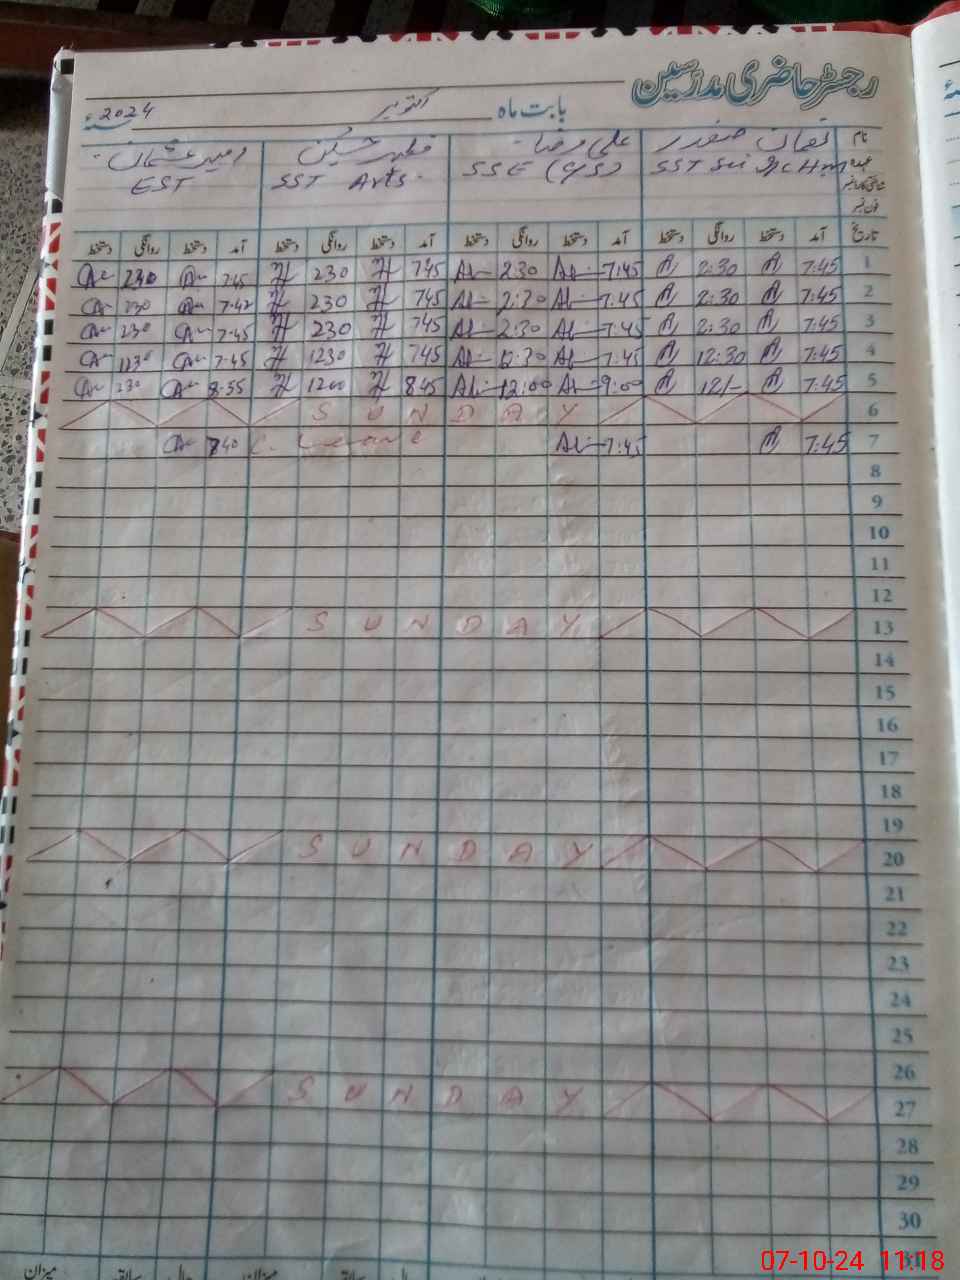 رجسٹر حاضری مدرسین
بابت ماہ اکتوبر سنۂ 2024
نام نعمان صفدر علی رضا ظہیر حسین امیر عثمان
عہدہ SST Sci SSE SST Arts EST
فون نمبر
تاریخ آمد دستخط روانگی دستخط آمد دستخط روانگی دستخط آمد دستخط روانگی دستخط آمد دستخط روانگی دستخط
1 7:45 2:30 7:45 2:30 745 230 745 230
2 7:45 2:30 7:45 2:30 745 230 7:42 230
3 7:45 2:30 7:45 2:30 745 230 7:45 230
4 7:45 12:30 7:45 12:30 745 1230 7:45 1230
5 7:45 12/- 9:00 12:00 845 1200 8:35 230
6 SUNDAY
7 7:45 7:45 C. Leave 740
8
9
10
11
12
13 SUNDAY
14
15
16
17
18
19
20 SUNDAY
21
22
23
24
25
26
27 SUNDAY
28
29
30
31
میزان سابقہ حال میزان سابقہ حال
07-10-24 11:18